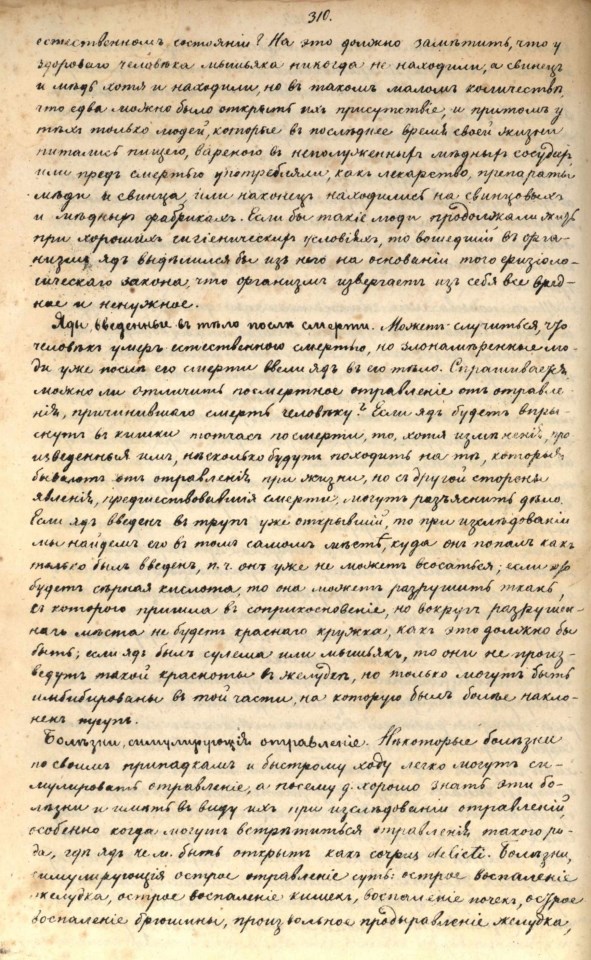 310.
естественномъ состояніи? На это должно замѣтить, что у
здороваго человѣка мышьяка никогда не находили, а свинецъ
и мѣдь хотя и находили, но въ такомъ маломъ количествѣ,
что едва можно было открыть ихъ присутствіе, и притомъ у
тѣхъ только людей, которые въ послѣднее время своей жизни
питались пищею, вареною въ неполуженныхъ мѣдныхъ сосудахъ,
или предъ смертью употребляли, какъ лекарство, препараты
мѣди и свинца, или наконецъ находились на свинцовыхъ
и мѣдныхъ фабрикахъ. Если бы такіе люди продолжали жить
при хорошихъ гигіеническихъ условіяхъ, то вошедшій въ орга-
низмъ ядъ выдѣлился бы изъ него на основаніи того физіоло-
гическаго закона, что организмъ извергаетъ изъ себя все вред-
ное и ненужное.
Яды, введенные въ тѣло послѣ смерти. Можетъ случиться, что
человѣкъ умеръ естественною смертью, но злонамѣренные лю-
ди уже послѣ его смерти ввели ядъ въ его тѣло. Спрашивается,
можно ли отличить посмертное отравленіе отъ отравле-
нія, причинившаго смерть человѣку? Если ядъ будетъ впры-
снутъ въ кишки тотчасъ по смерти, то, хотя измѣненія, про-
изведенныя имъ, нѣсколько будутъ походить на тѣ, которыя
бываютъ отъ отравленія при жизни, но съ другой стороны
явленія, предшествовавшія смерти, могутъ разъяснить дѣло.
Если ядъ введенъ въ трупъ уже остывшій, то при изслѣдованіи
мы найдемъ его въ томъ самомъ мѣстѣ, куда онъ попалъ какъ
только былъ введенъ, п. ч. онъ уже не можетъ всосаться; если это
будетъ сѣрная кислота, то она можетъ разрушить ткань,
съ которою пришла въ соприкосновеніе, но вокругъ разрушен-
наго мѣста не будетъ краснаго кружка, какъ это должно бы
быть; если ядъ былъ сулема или мышьякъ, то они не произ-
ведутъ такой красноты въ желудкѣ, но только могутъ быть
имбибированы въ той части, на которую былъ болѣе накло-
ненъ трупъ.
Болѣзни, симулирующія отравленіе. Нѣкоторые болѣзни
по своимъ припадкамъ и быстрому ходу легко могутъ си-
мулировать отравленіе, а посему д. хорошо знать эти бо-
лѣзни и имѣть въ виду ихъ при изслѣдованіи отравленій,
особенно когда могутъ встрѣтиться отравленія такого ро-
да, гдѣ ядъ не м. быть открытъ какъ corpus delicti. Болѣзни,
симулирующія острое отравленіе суть: острое воспаленіе
желудка, острое воспаленіе кишекъ, воспаленіе почекъ, острое
воспаленіе брюшины, произвольное продыравленіе желудка,